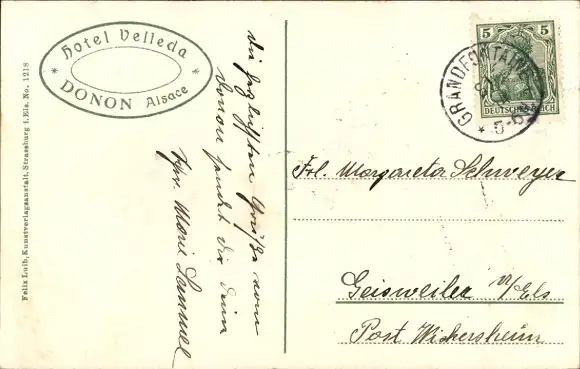 Hotel Velleda
* DONON Alsace *
die herzlichsten Grüße vom
Donon sendet dir deine
Marie Lammel
Felix Luib, Kunstverlagsanstalt, Strassburg i. Els. No. 1218
5 5
DEUTSCHES REICH
GRANDFONTAINE
* 5-6
Frl. Margareta Schweyer
Geisweiler i/Els
Post Wickersheim